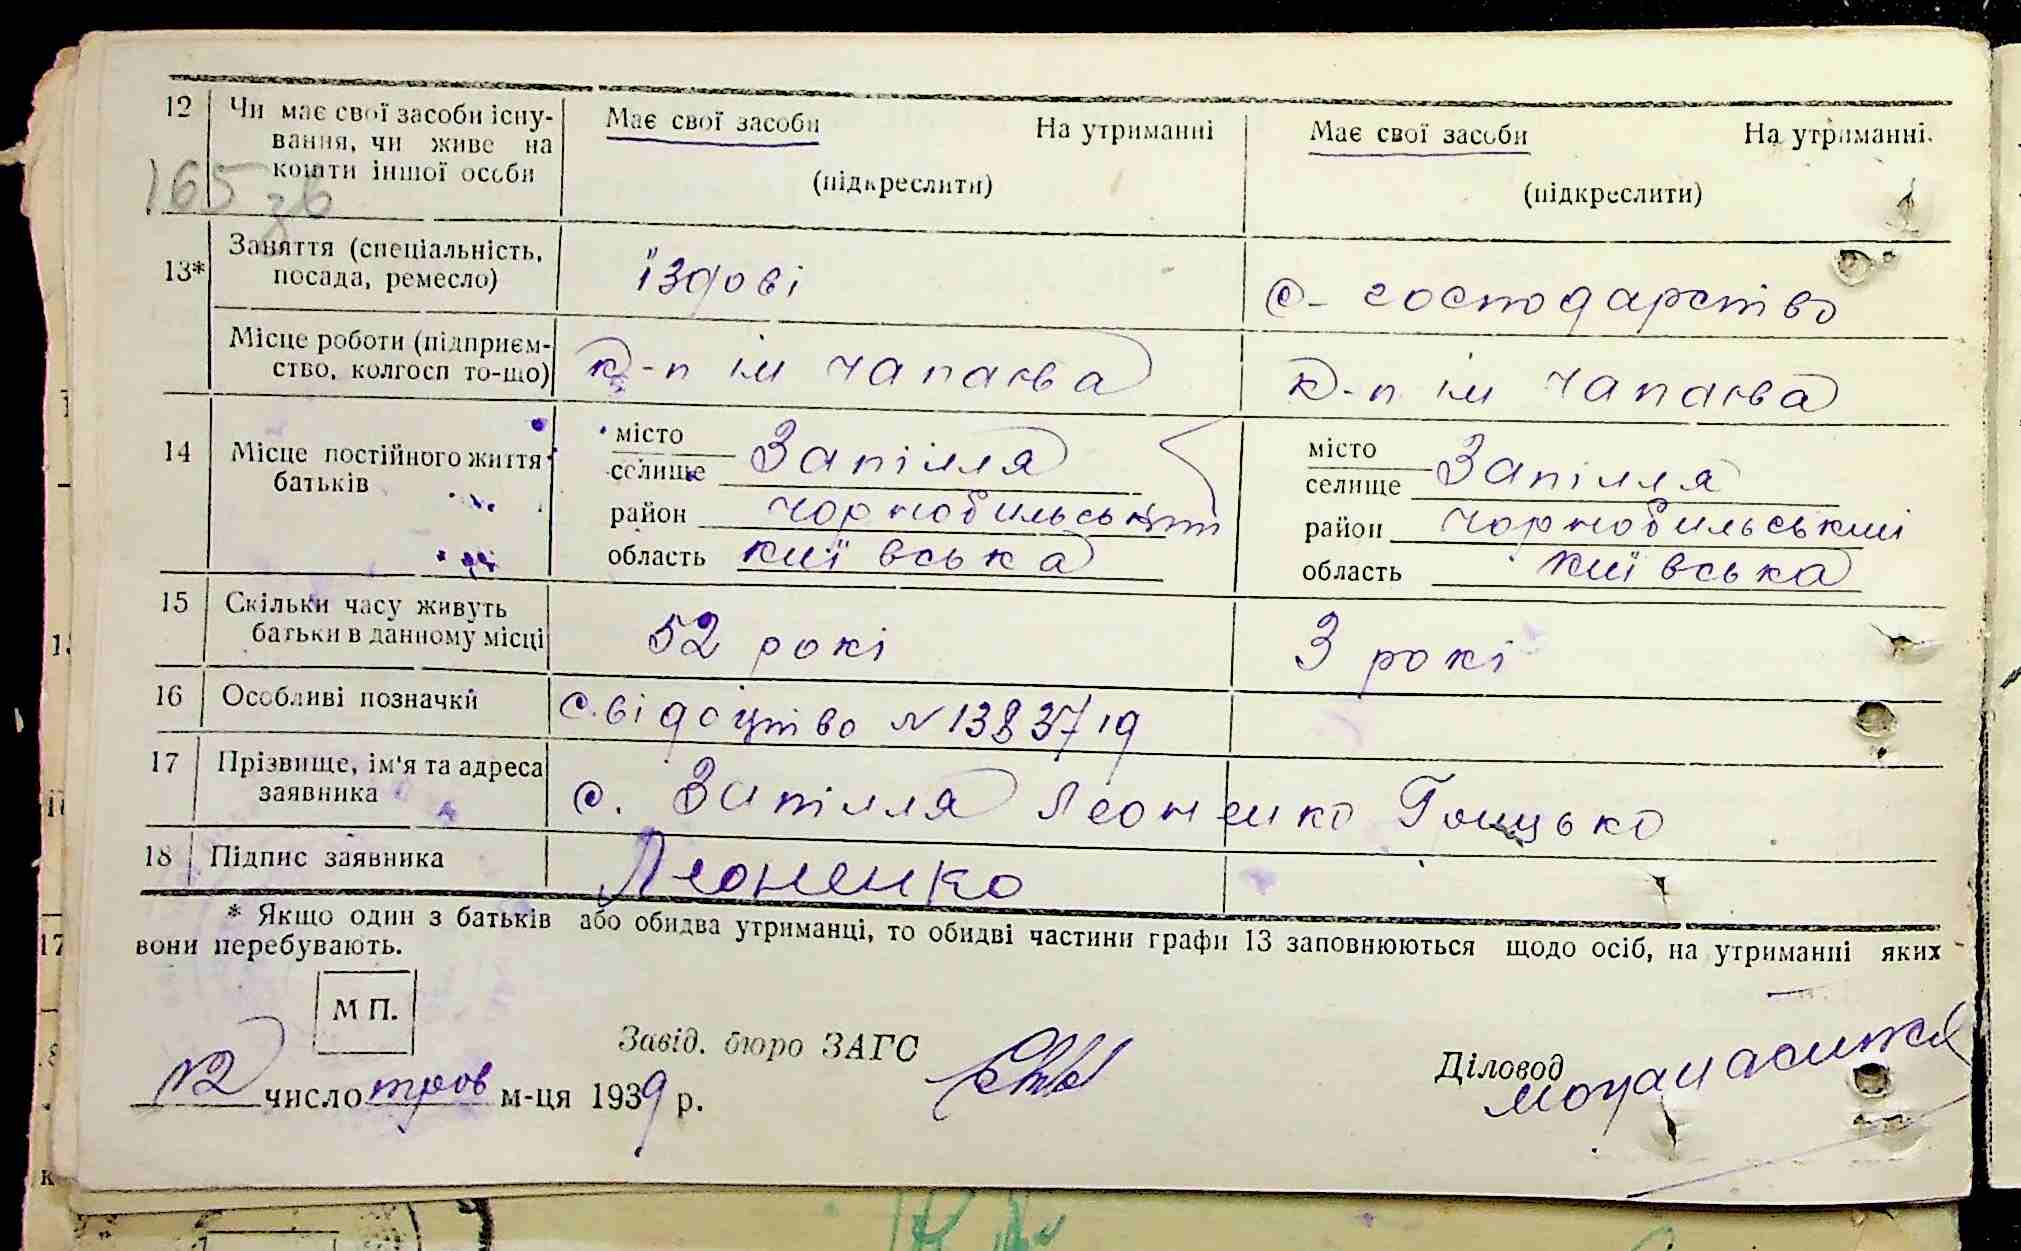 12 Чи має свої засоби існу- Має свої засоби На утриманні Має свої засоби На утриманні.
вання, чи живе на
кошти іншої особи (підкреслити) (підкреслити)
165 зв
13* Заняття (спеціальність, їздові с-господарство
посада, ремесло)
Місце роботи (підприєм- к-п ім Чапаєва к-п ім Чапаєва
ство, колгосп то-що)
14 Місце постійного життя місто Запілля місто Запілля
батьків селище селище
район Чорнобильський район Чорнобильський
область Київська область Київська
15 Скільки часу живуть 52 рокі 3 рокі
батьки в данному місці
16 Особливі позначки Свідоцтво № 1383719
17 Прізвище, ім'я та адреса с. Запілля Леоненко Грицько
заявника
18 Підпис заявника Леоненко
* Якщо один з батьків або обидва утриманці, то обидві частини графи 13 заповнюються щодо осіб, на утриманні яких
вони перебувають.
М П.
Завід. бюро ЗАГС
Діловод
число трав м-ця 1939 р.